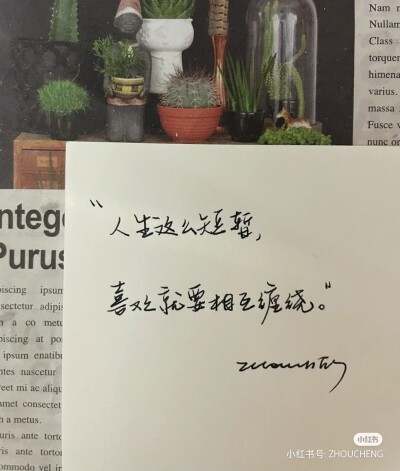 Nam n
Nullam
Class
torquen
himena
varius.
massa
Fusce v
nunc or
“人生这么短暂，
喜欢就要相互缠绕。”
ntege
Purus
piscing ipsum
sectetur adipis
n a co metu
piscing at po
ipsum enatibu
ntes nascetur
reet mi ac aliqu
amet consectet
h a metus.
uris ante torto
uris ante tortor
ommodo vel ir
小红书
小红书号: ZHOUCHENG